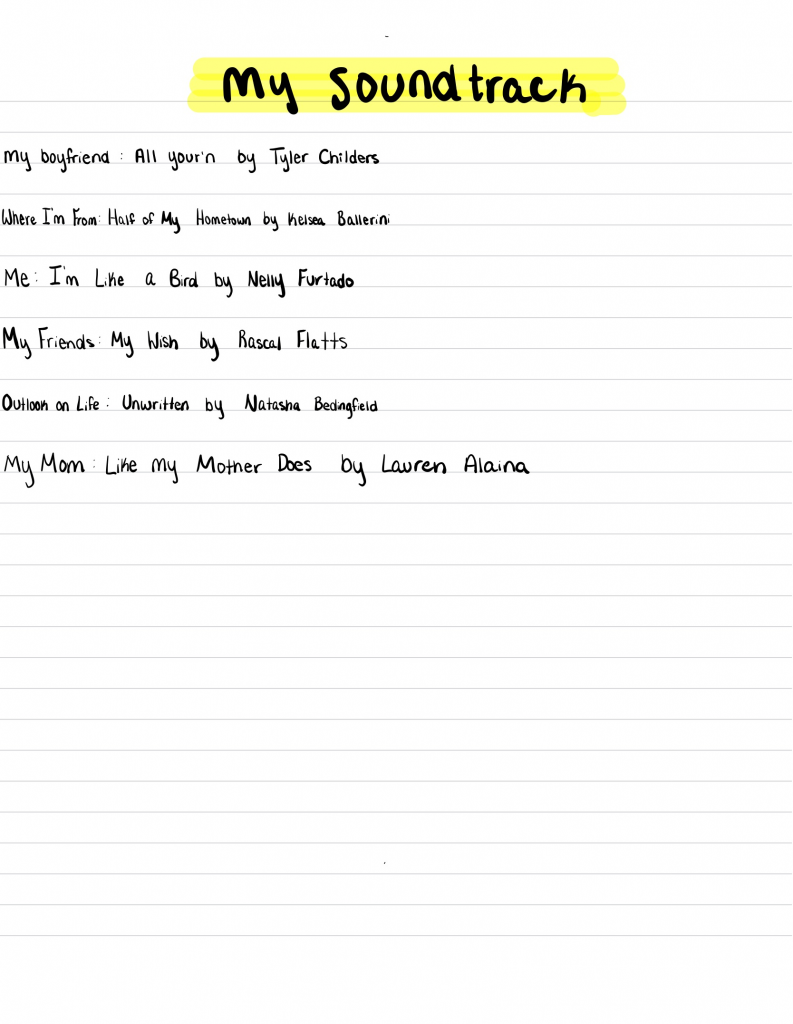 My Soundtrack
My boyfriend : All your'n by Tyler Childers
Where I'm From: Half of My Hometown by Kelsea Ballerini
Me: I'm Like a Bird by Nelly Furtado
My Friends: My Wish by Rascal Flatts
Outlook on Life : Unwritten by Natasha Bedingfield
My Mom : Like my Mother Does by Lauren Alaina